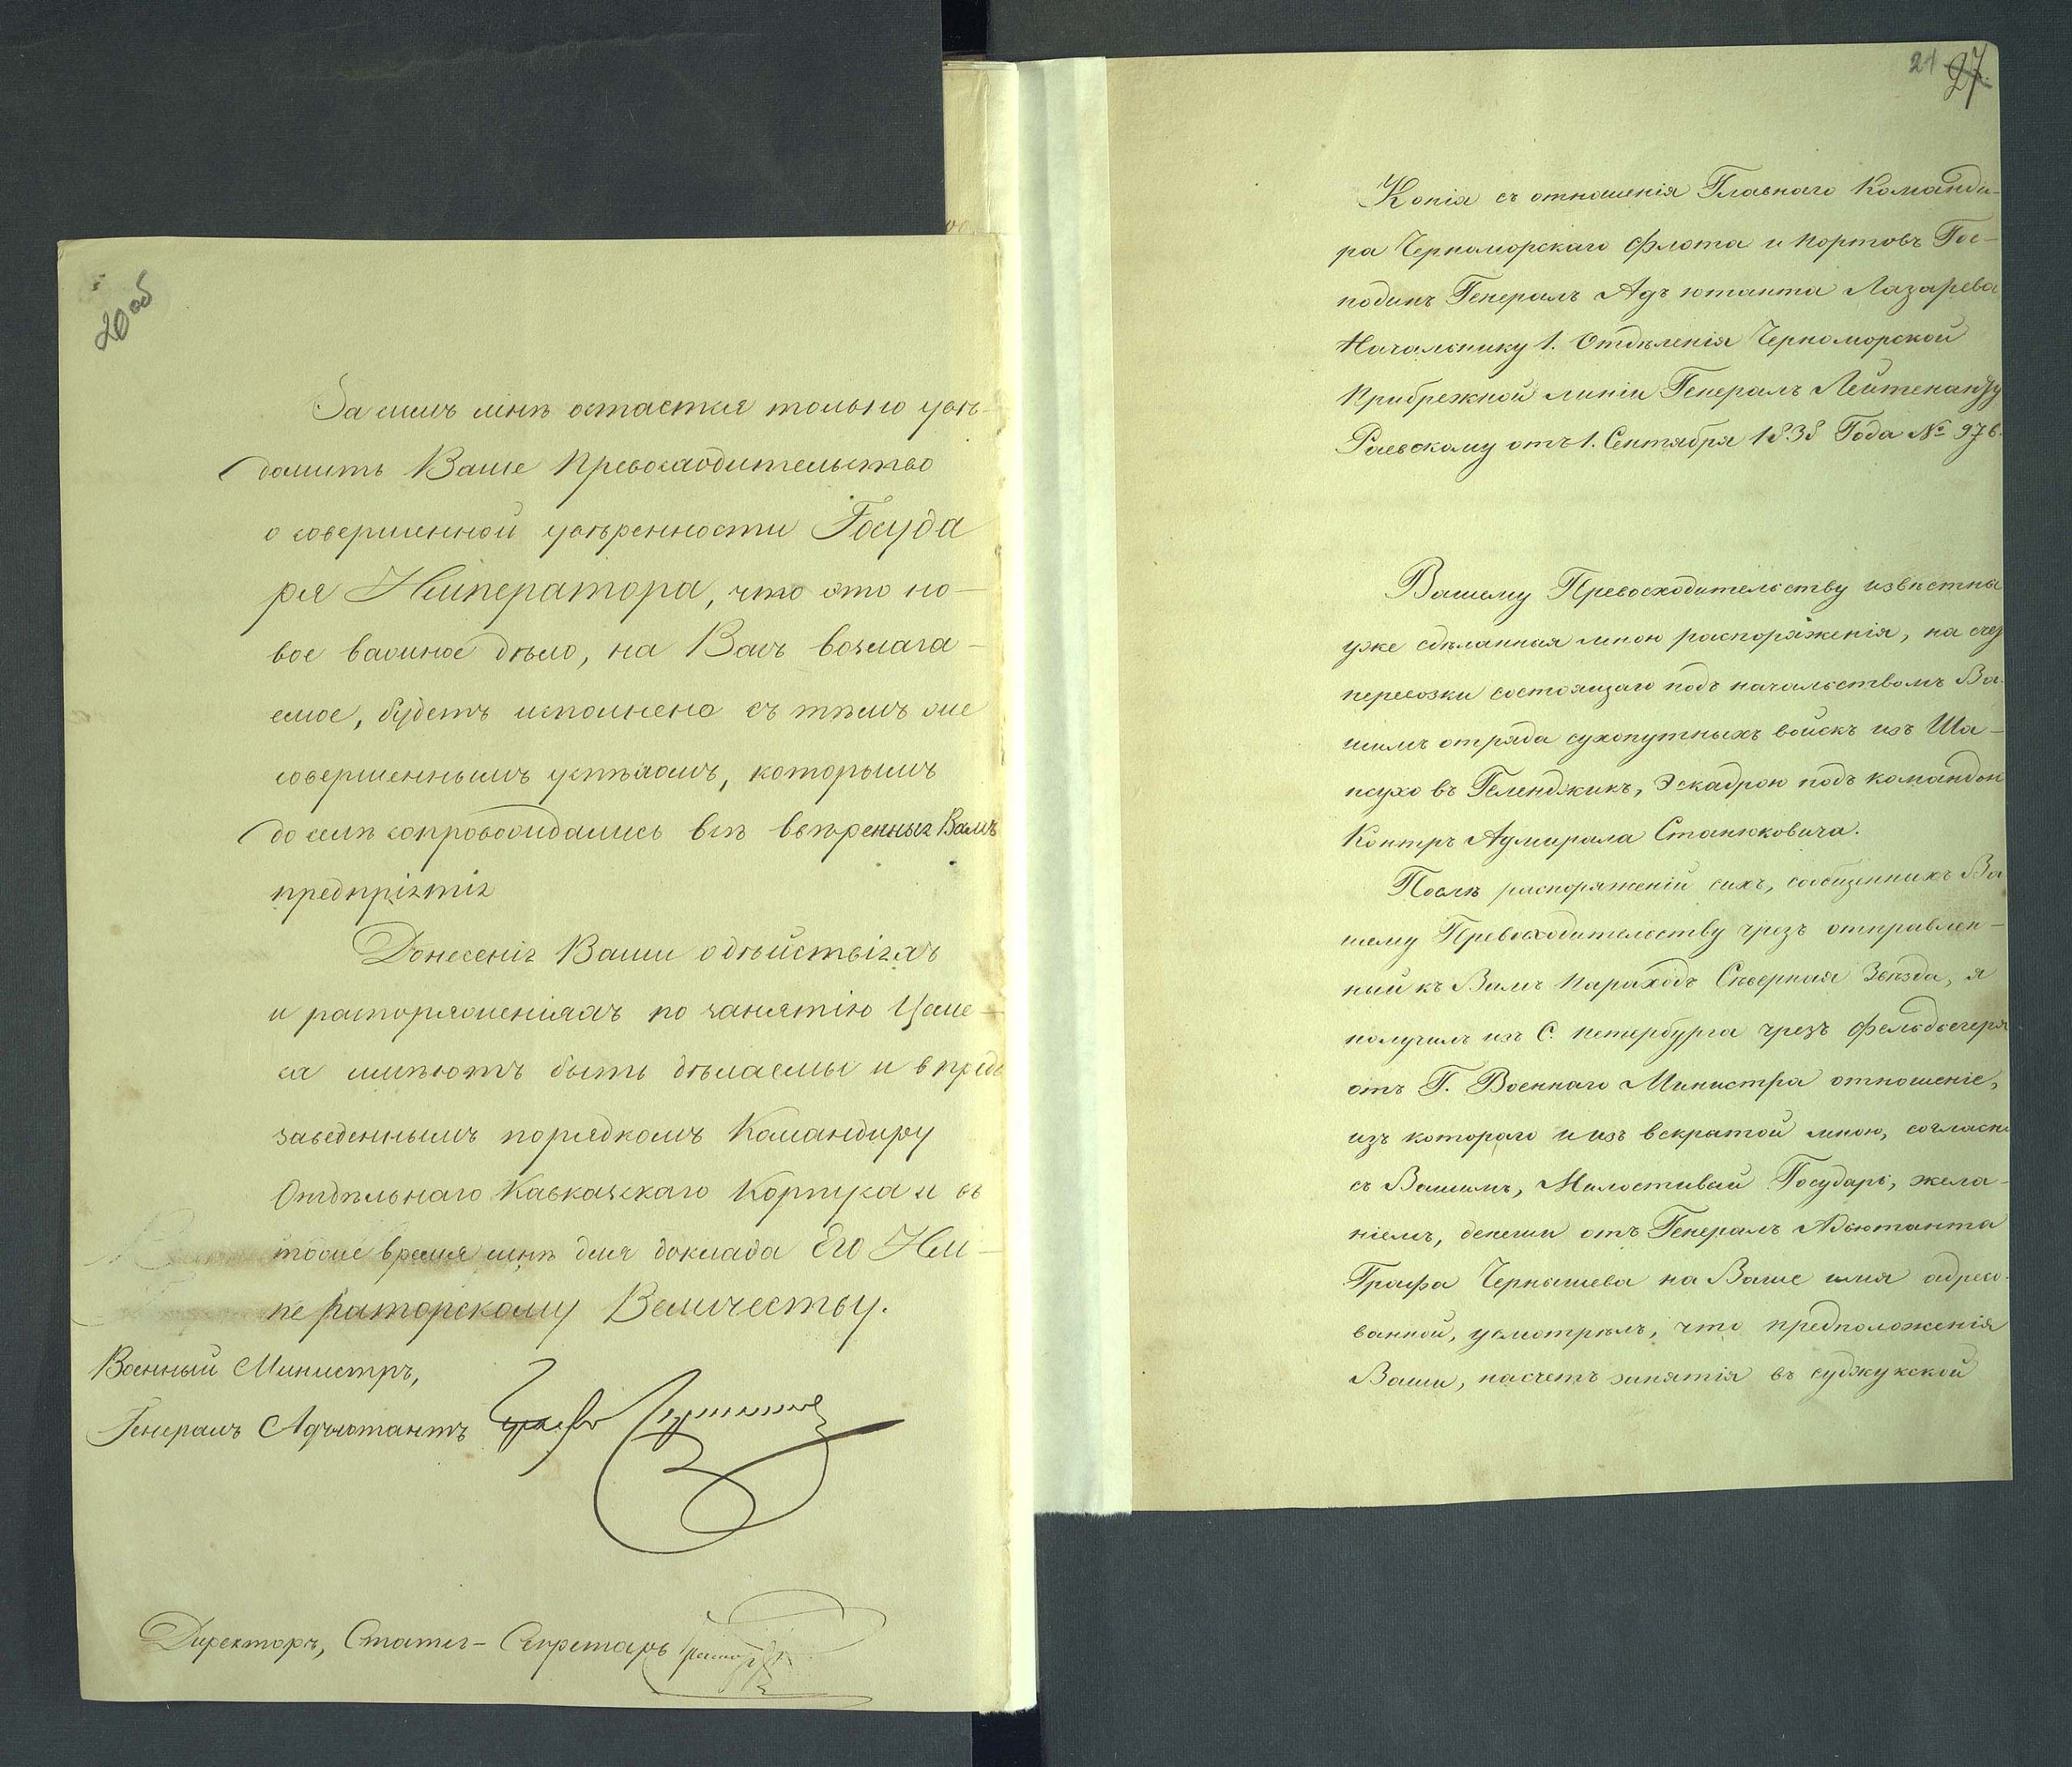 20 об
За симъ мнѣ остается только увѣ-
домить Ваше Превосходительство
о совершенной увѣренности Госуда
ря Императора, что это но-
вое важное дѣло, на Васъ возлага-
емое, будетъ исполнено съ тѣмъ же
совершеннымъ успѣхомъ, которымъ
до селѣ сопровождались всѣ ввѣренныя Вамъ
предпріятія
Донесенія Ваши о дѣйствіяхъ
и распоряженіяхъ по занятію Цеме-
са имѣютъ быть дѣлаемы и впредь
заведеннымъ порядкомъ Командиру
Отдѣльнаго Кавказскаго Корпуса и въ
тоже время мнѣ для доклада Его Им-
ператорскому Величеству.
Военный Министръ,
Генералъ Адъютантъ Графъ Чернышев
Директоръ, Статсъ-Секретарь
21 27
Копія съ отношенія Главнаго Команди-
ра Черноморскаго Флота и портовъ Гос-
подинъ Генералъ Адъютанта Лазарева
Начальнику 1. Отдѣленія Черноморской
Прибрежной линіи Генералъ Лейтенанту
Раевскому отъ 1. Сентября 1838 Года № 976.
Вашему Превосходительству извѣстны
уже сдѣланная мною распоряженія, на счет
перевозки состоящаго подъ начальствомъ Ва-
шимъ отряда сухопутныхъ войскъ изъ Ша-
псухо въ Геленджикъ, Эскадрою подъ командою
Контръ Адмирала Станюковича.
Послѣ распоряженій сихъ, сообщенныхъ Ва
шему Превосходительству чрезъ отправлен-
ный къ Вамъ пароходъ Сѣверная Звѣзда, я
получилъ изъ С. петербурга чрезъ Фельдъегеря
отъ Г. Военнаго Министра отношеніе,
изъ котораго и изъ вскратой мною, согласно
съ Вашимъ, Милостивый Государь, жела-
ніемъ, депеши отъ Генералъ Адъютанта
Графа Чернышева на Ваше имя адресо-
ванной, усмотрѣлъ, что предположенія
Ваши, насчетъ занятія въ суджукской